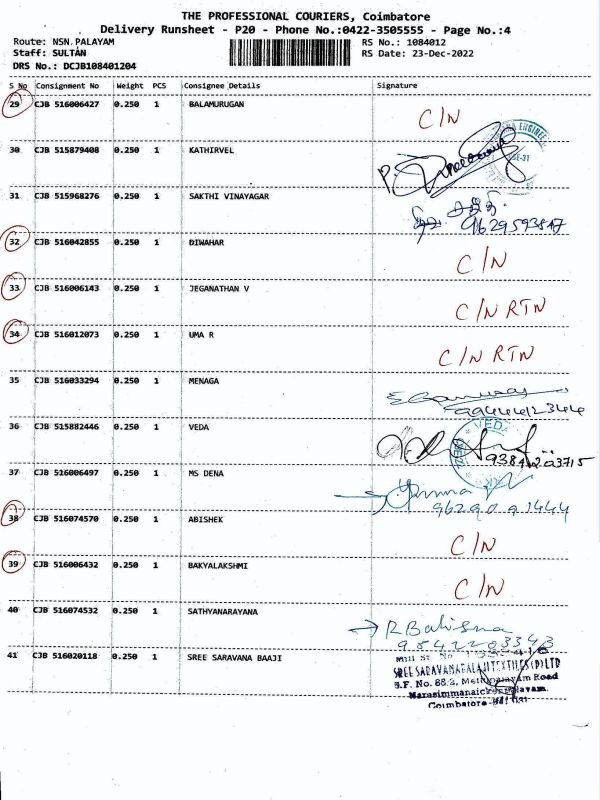 THE PROFESSIONAL COURIERS, Coimbatore
Delivery Runsheet - P20 - Phone No.:0422-3505555 - Page No.:4
Route: NSN.PALAYAM RS No.: 1084012
Staff: SULTAN RS Date: 23-Dec-2022
DRS No.: DCJB108401204
S No Consignment No Weight PCS Consignee Details Signature
29 CJB 516006427 0.250 1 BALAMURUGAN C/N
30 CJB 515879408 0.250 1 KATHIRVEL
31 CJB 515968276 0.250 1 SAKTHI VINAYAGAR
32 CJB 516042855 0.250 1 DIWAHAR C/N
33 CJB 516006143 0.250 1 JEGANATHAN V C/N RTN
34 CJB 516012073 0.250 1 UMA R C/N RTN
35 CJB 516033294 0.250 1 MENAGA
9944412344
36 CJB 515882446 0.250 1 VEDA VEDA
9384203715
37 CJB 516006497 0.250 1 MS DENA
9629091444
38 CJB 516074570 0.250 1 ABISHEK C/N
39 CJB 516006432 0.250 1 BAKYALAKSHMI C/N
40 CJB 516074532 0.250 1 SATHYANARAYANA
41 CJB 516020118 0.250 1 SREE SARAVANA BAAJI
SREE SARAVANABALAJI TEXTILES (P) LTD
S.F. No. 88.2, Mettupalayam Road
Coimbatore